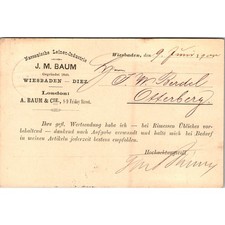 Nassauische Leinen-Industrie
J. M. BAUM
WIESBADEN — DIEZ.
London:
A. BAUM & CIE., 8.9 Friday Street.
Wiesbaden, den 9. Juni 1900
Herrn J. W. Berdel
Otterberg
Ihre gefl. Wertsendung habe ich — bei Rimessen Übliches vor-
behaltend — dankend nach Aufgabe verwandt und halte mich bei Bedarf
in meinen Artikeln jederzeit bestens empfohlen.
Hochachtungsvoll